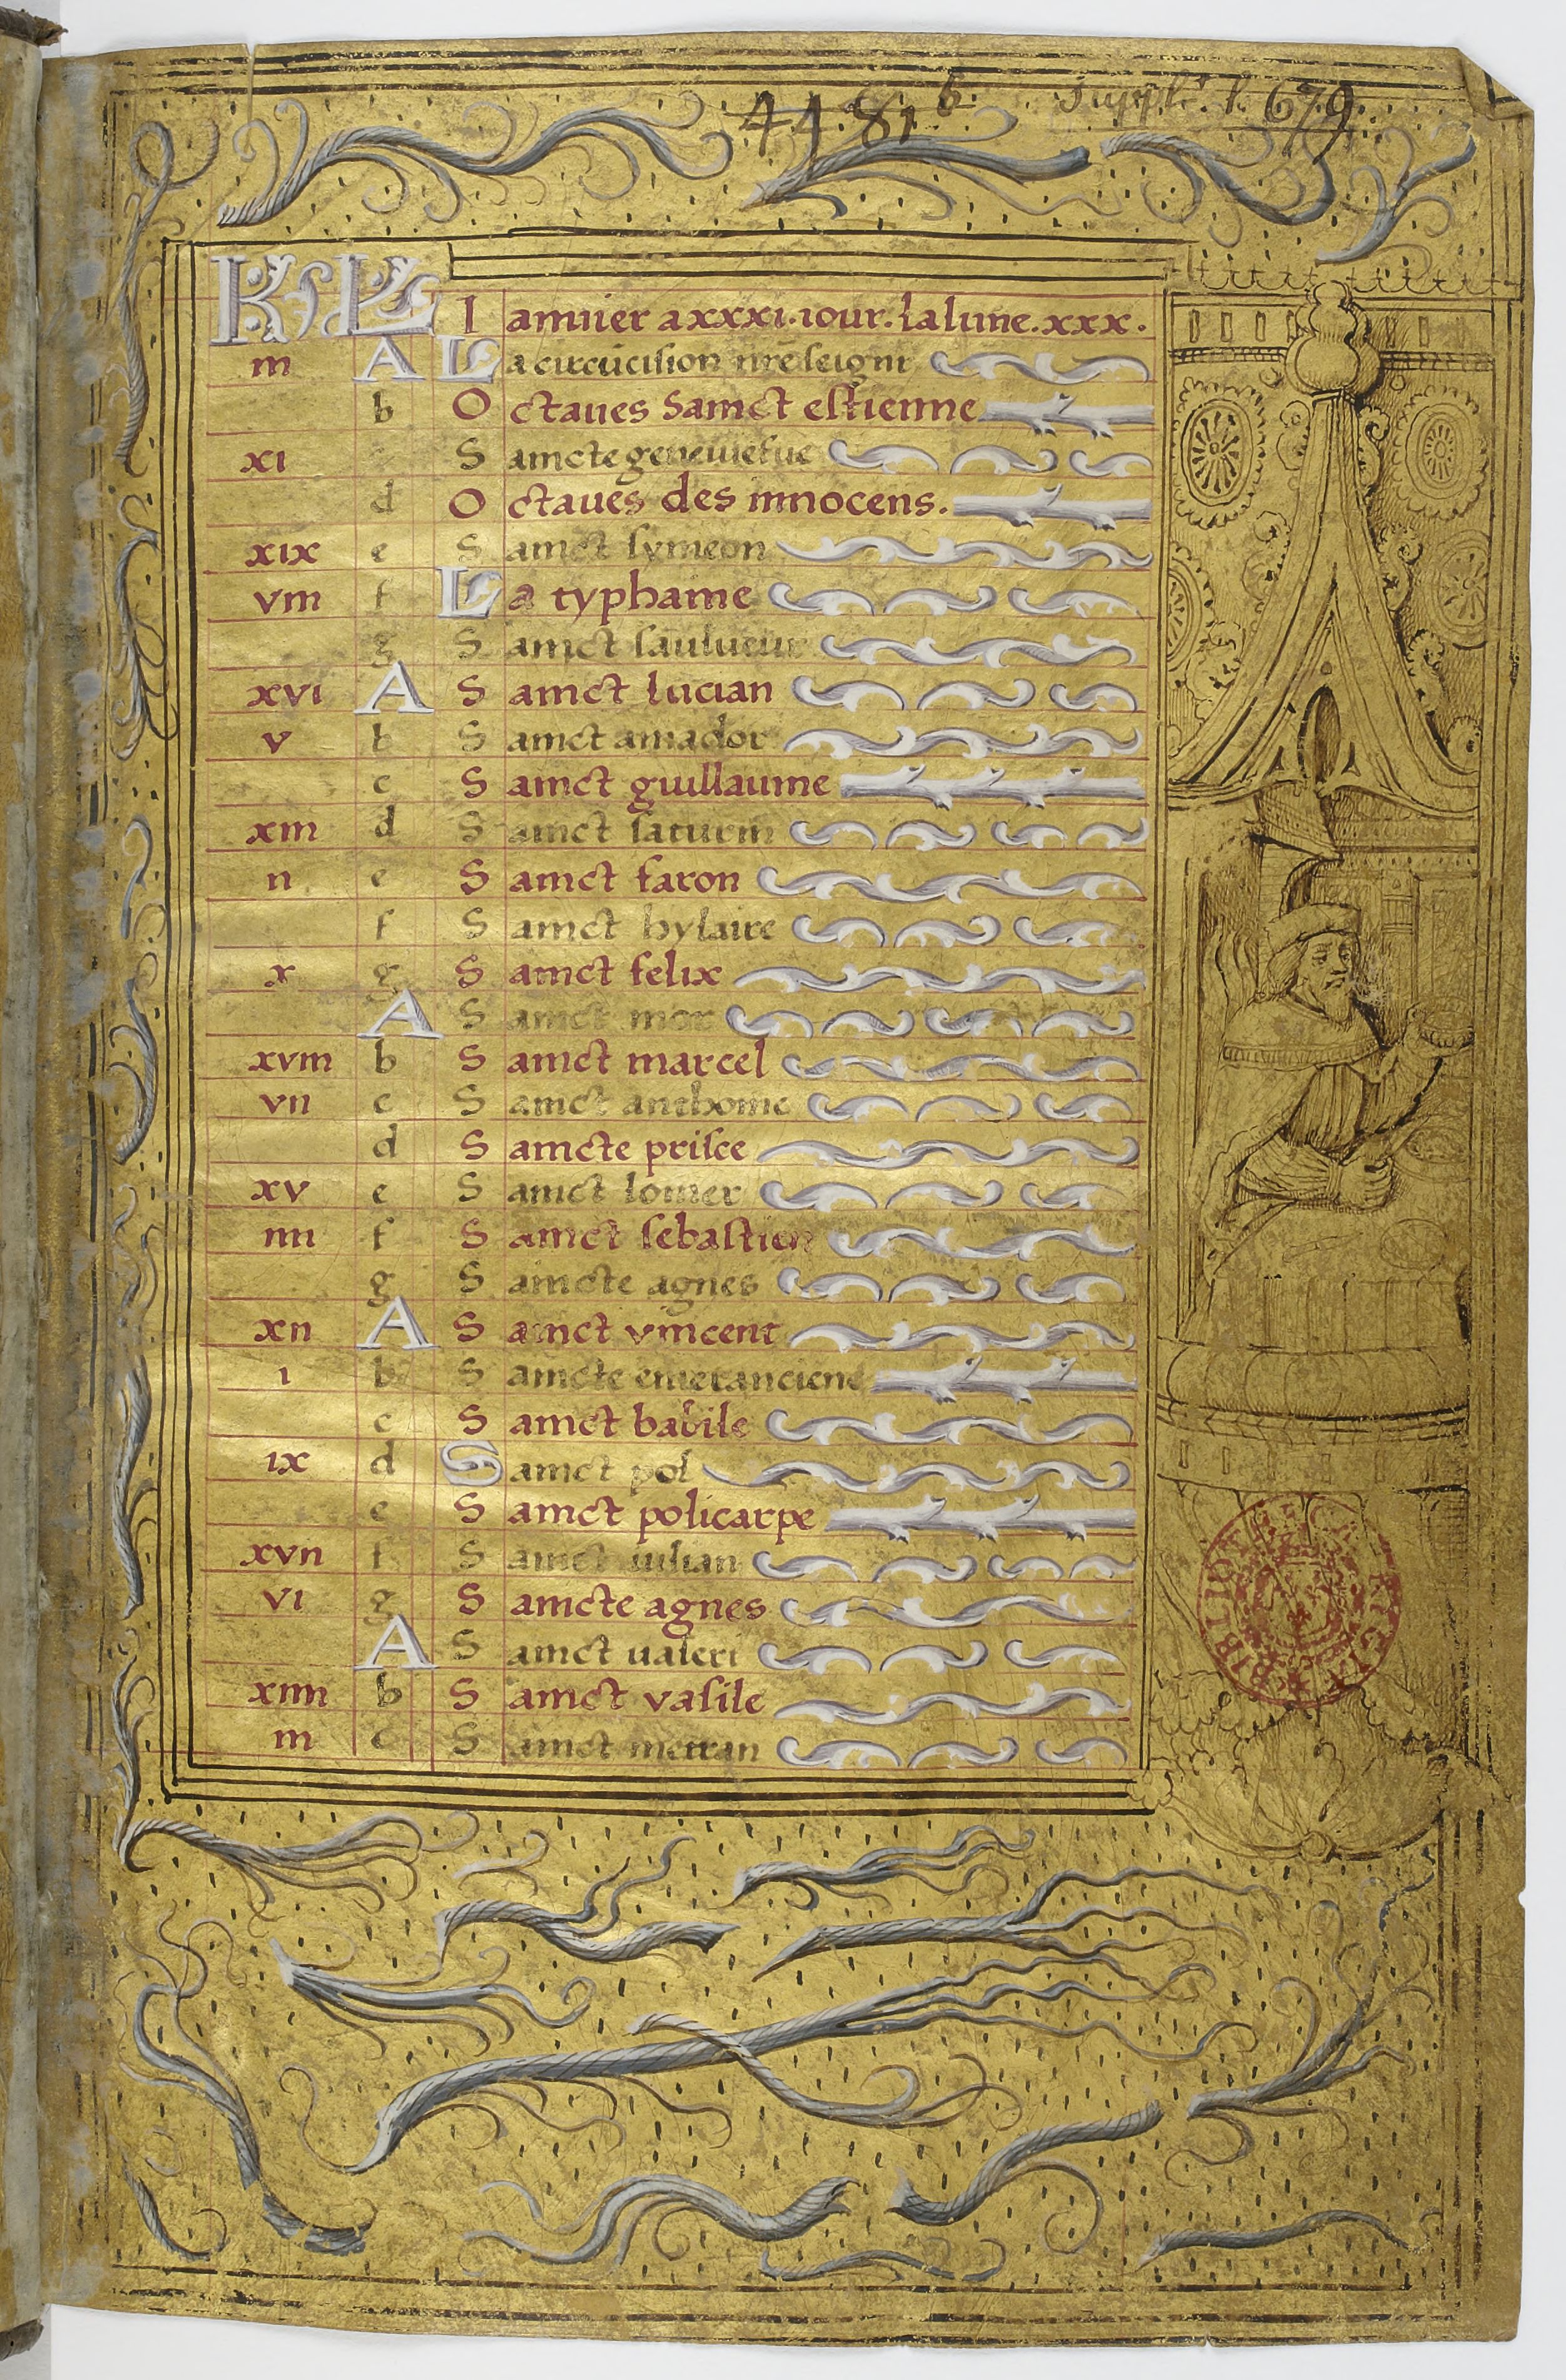 4481 b. Suppl. l. 679.
KL Ianuier a xxxi. iour. la lune. xxx.
iii A La circūcision nrē seignr
b Octaues Sainct estienne
xi Saincte geneuiefue
d Octaues des innocens.
xix e Sainct symeon
viii f La typhaine
g Sainct
xvi A Sainct lucian
v b Sainct amador
c Sainct guillaume
xiii d Sainct saturin
ii e Sainct faron
f Sainct hylaire
x g Sainct felix
A Sainct mor
xviii b Sainct marcel
vii c Sainct anthoine
d Saincte prisce
xv e Sainct lomer
iiii f Sainct sebastien
g Saincte agnes
xii A Sainct vincent
i b Saincte emeranciene
c Sainct babile
ix d Sainct pol
e Sainct policarpe
xvii f Sainct iulian
vi g Saincte agnes
A Sainct ualeri
xiiii b Sainct vasile
iii c Sainct metran